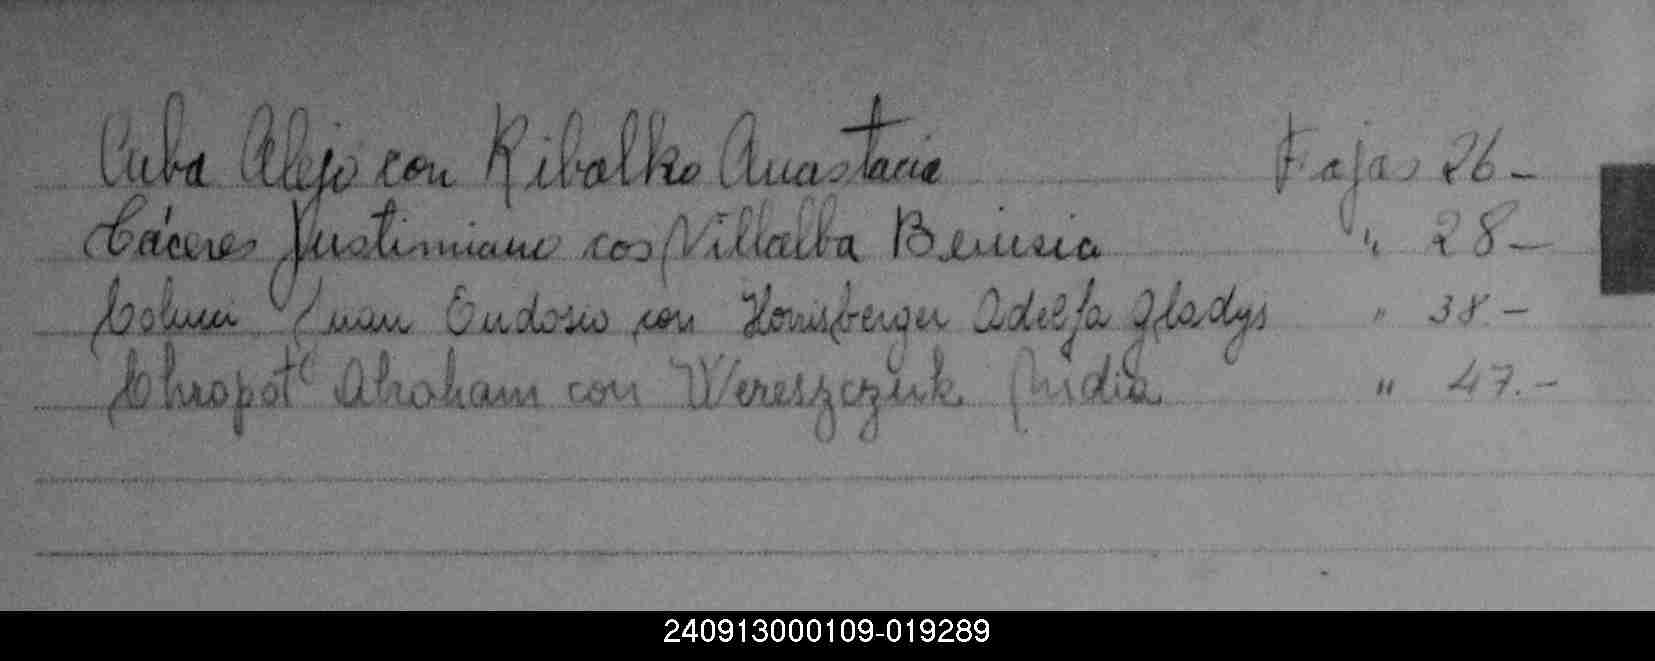 Cuba Alejo con Ribalko Anastacia Fojas 26-
Cáceres Justimiano con Villalba Benicia " 28-
Juan Eudosio con Adelfa Gladys " 38.-
Abraham con Wereszczuk Nidia " 47.-
240913000109-019289